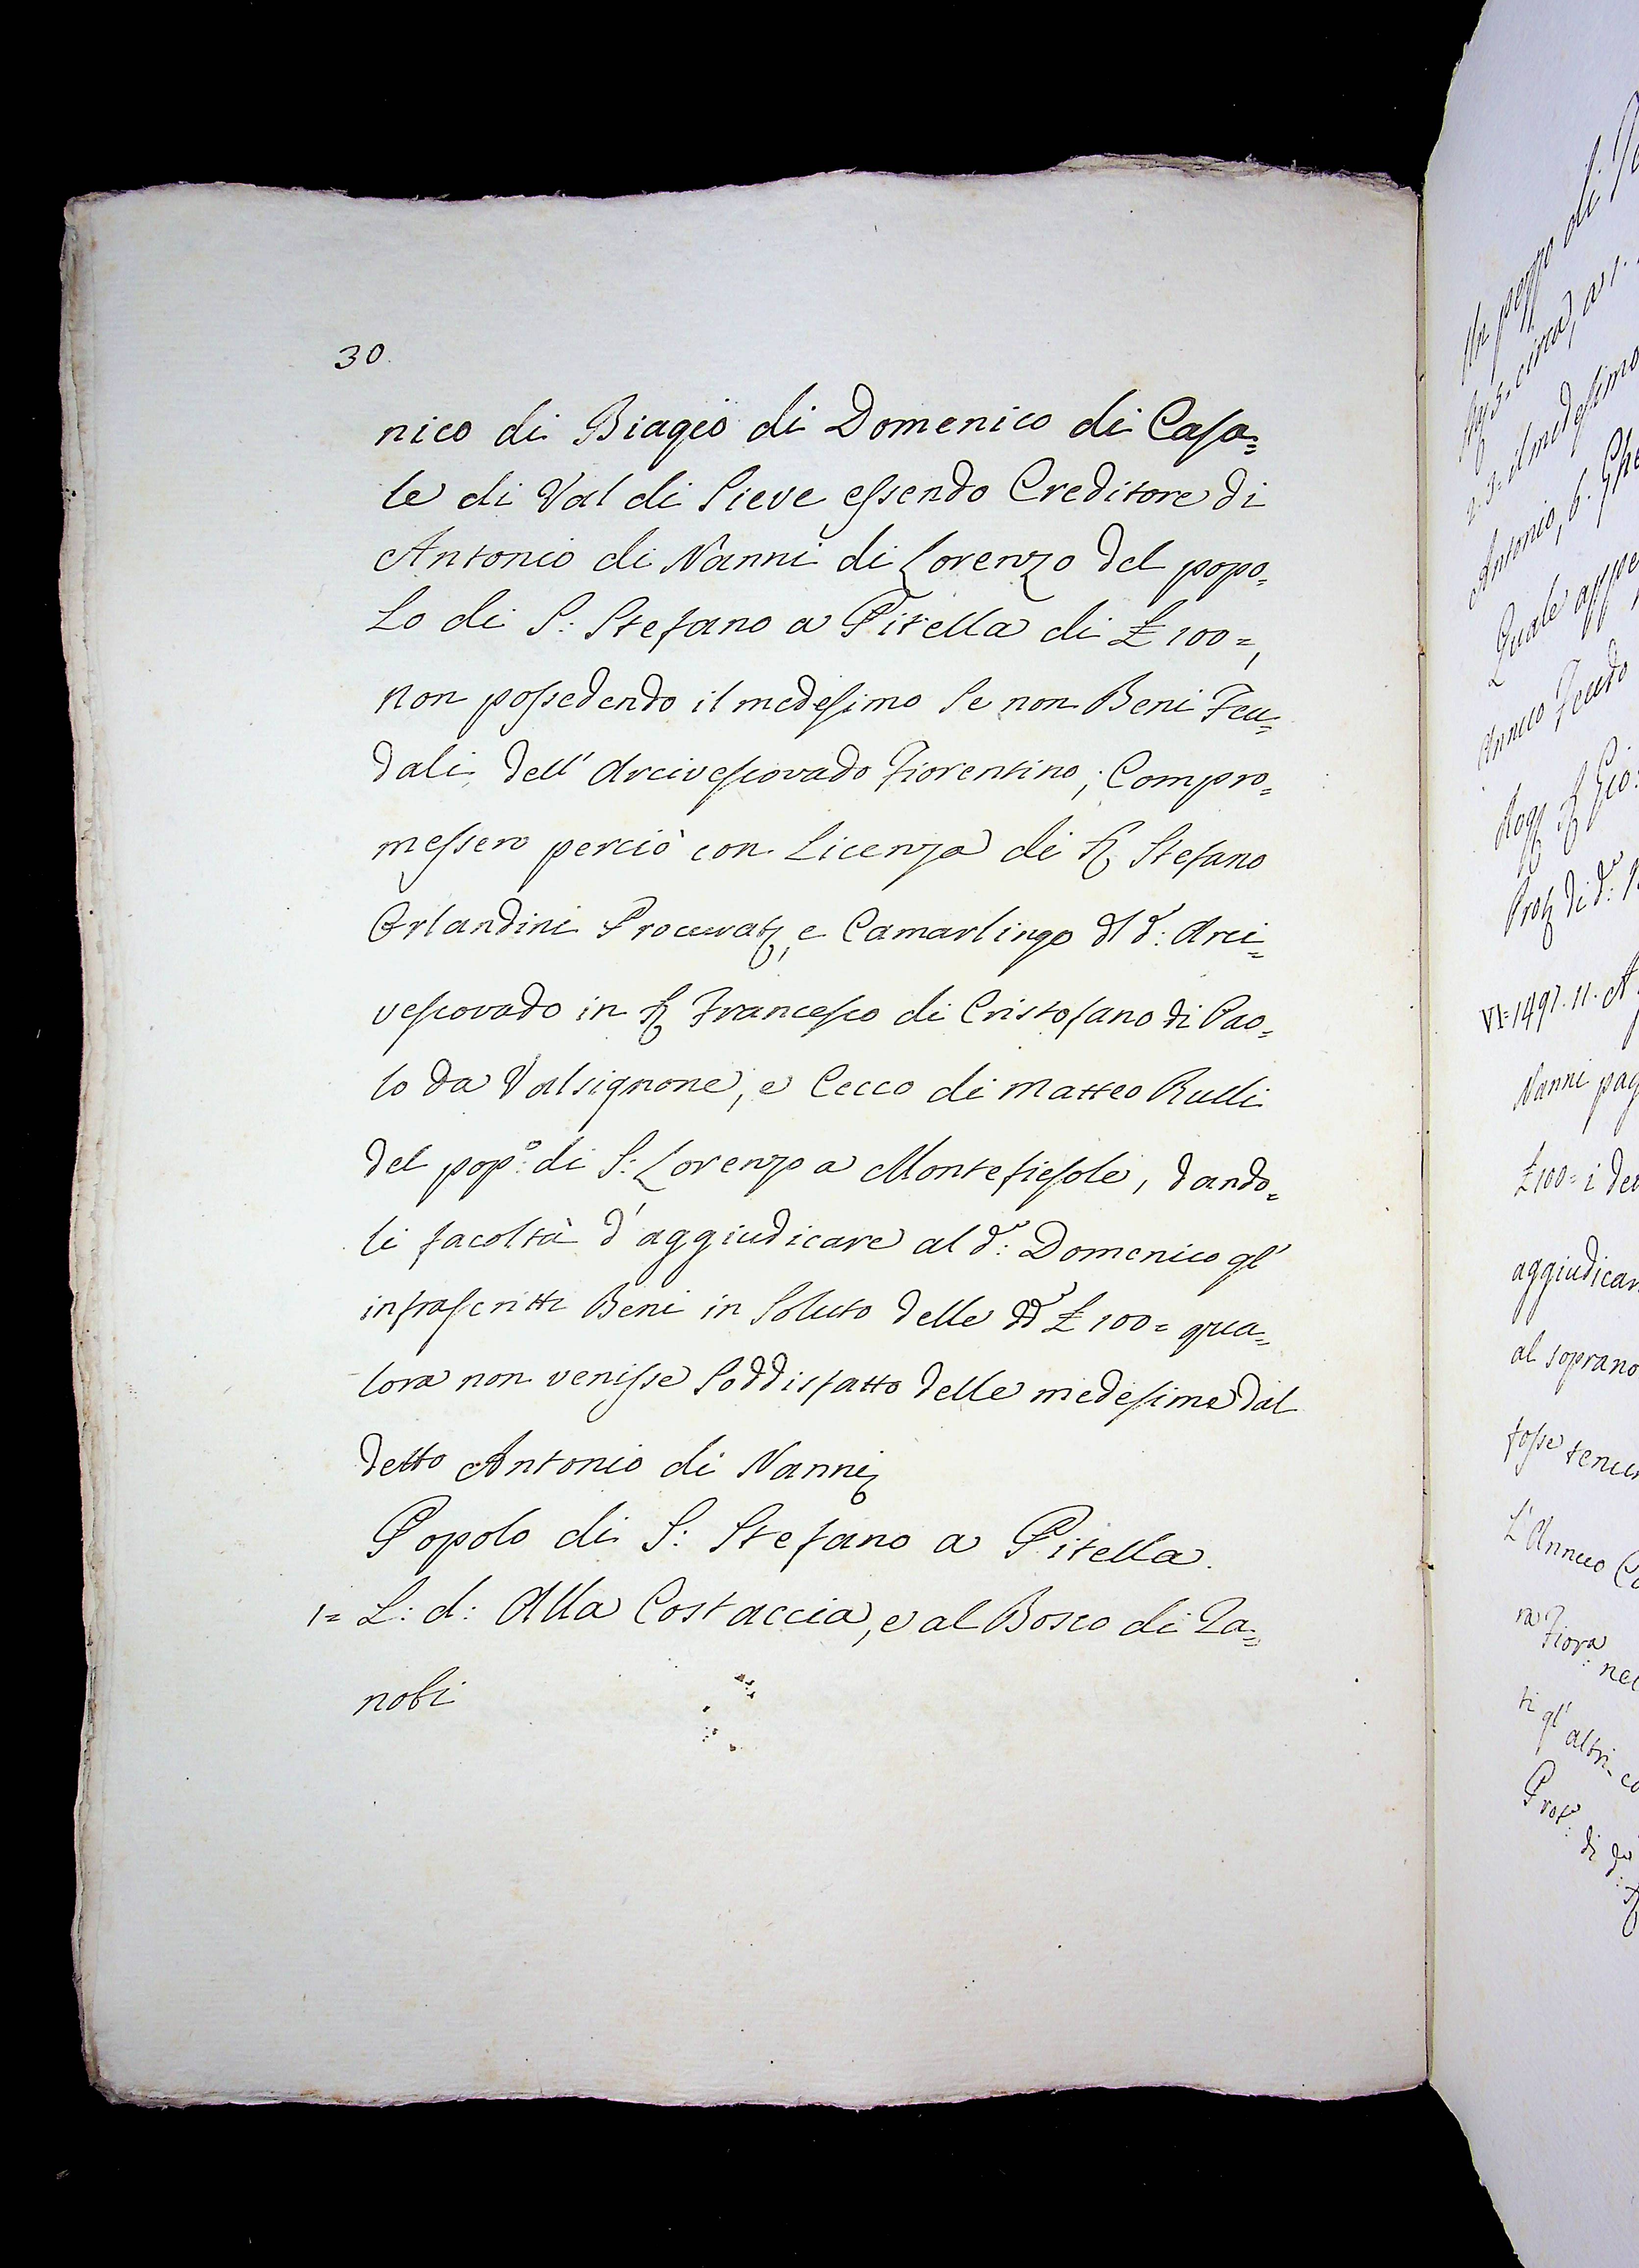 30.
nico di Biagio di Domenico di Casa=
le di Val di Sieve essendo Creditore di
Antonio di Nanni di Lorenzo del popo=
lo di S: Stefano a Pitella di £ 100=,
non possedendo il medesimo se non Beni Feu=
dali dell' Arcivescovado Fiorentino; Compro=
messero perciò con Licenza di Sr Stefano
Orlandini Procurat, e Camarlingo dl do: Arci=
vescovado in Sr Francesco di Cristofano di Pao=
lo da Valsignone, e Cecco di Matteo Rulli
del popo: di S: Lorenzo a Montefiesole, dando=
li facoltà d'aggiudicare al do: Domenico gl'
infrascritti Beni in Soluto delle dde £ 100= qua=
lora non venisse soddisfatto delle medesime dal
detto Antonio di Nanni
Popolo di S: Stefano a Pitella.
1= L: d: Alla Costaccia, e al Bosco di Za=
nobi
Un pezzo di
circa, a 1.
2. 3. il medesimo
Antonio, 6.
Quale
Annuo Feudo
Rogo Sr Gio:
Prot di do:
VI= 1497. 11. A
Nanni pag
£ 100= i
aggiudicar
al soprano
fosse tenu
L'Annuo
Fiora: nel
ti gl' altri
Prot: di do: